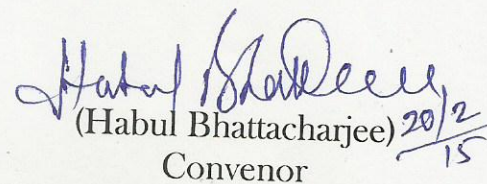 Habul Bhattacharjee
(Habul Bhattacharjee) 20/2/15
Convenor